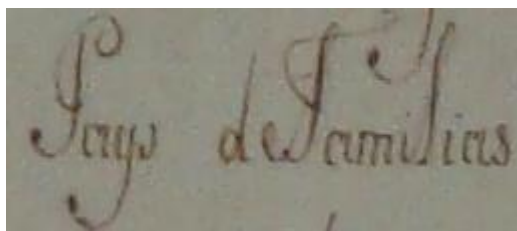 Pays de Familias